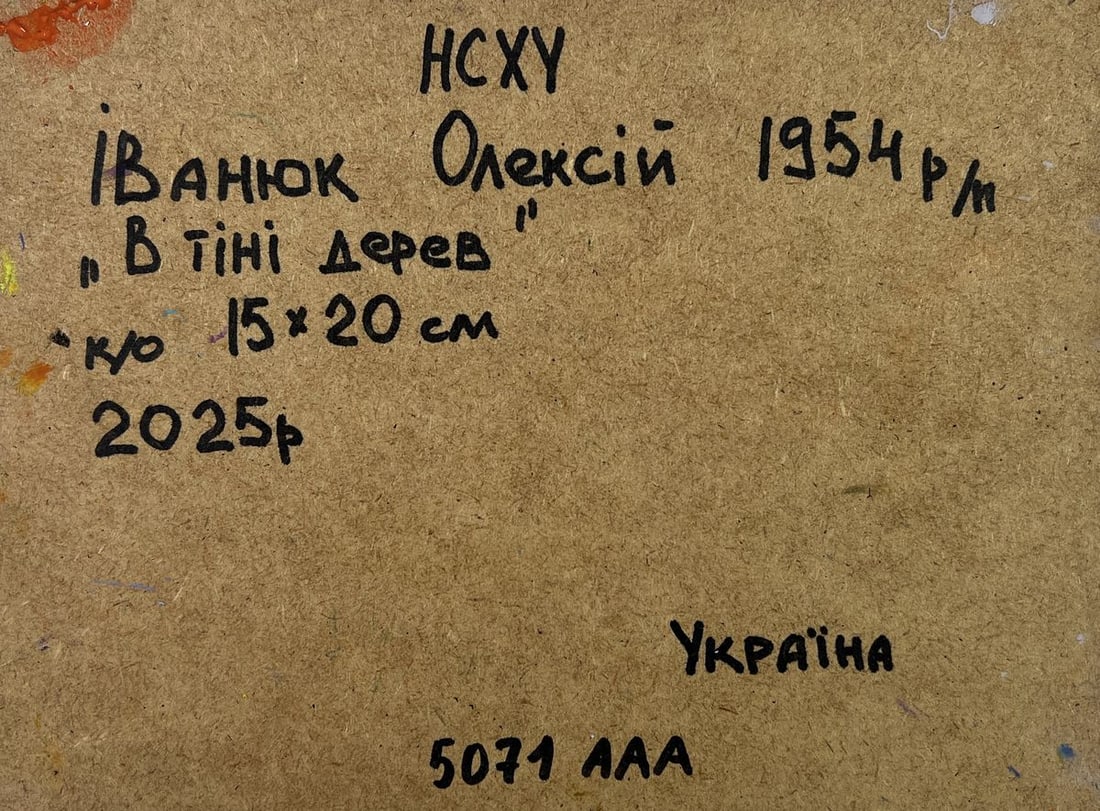 НСХУ
Іванюк Олексій 1954 р/н
„В тіні дерев"
к/о 15×20 см
2025р
Україна
5071 ААА